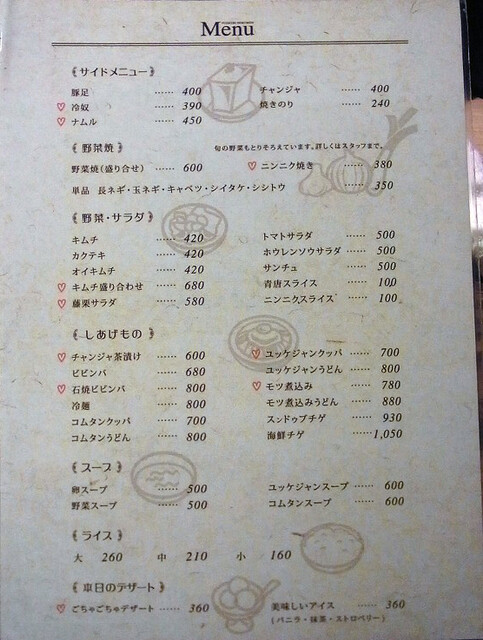 Menu
《サイドメニュー》
豚足 …… 400 チャンジャ …… 400
♡ 冷奴 …… 390 焼きのり …… 240
♡ ナムル …… 450
《野菜焼》 旬の野菜もとりそろえています。詳しくはスタッフまで。
野菜焼(盛り合せ) …… 600 ♡ ニンニク焼き …… 380
単品 長ネギ・玉ネギ・キャベツ・シイタケ・シシトウ …… 350
《野菜・サラダ》
キムチ …… 420 トマトサラダ …… 500
カクテキ …… 420 ホウレンソウサラダ …… 500
オイキムチ …… 420 サンチュ …… 500
♡ キムチ盛り合わせ …… 680 青唐スライス …… 100
♡ 藤栗サラダ …… 580 ニンニクスライス …… 100
《しあげもの》
♡ チャンジャ茶漬け …… 600 ♡ ユッケジャンクッパ …… 700
ビビンバ …… 680 ユッケジャンうどん …… 800
♡ 石焼ビビンバ …… 800 ♡ モツ煮込み …… 780
冷麺 …… 800 モツ煮込みうどん …… 880
コムタンクッパ …… 700 スンドゥブチゲ …… 930
コムタンうどん …… 800 海鮮チゲ …… 1,050
《スープ》
卵スープ …… 500 ユッケジャンスープ …… 600
野菜スープ …… 500 コムタンスープ …… 600
《ライス》
大 260 中 210 小 160
《本日のデザート》
♡ ごちゃごちゃデザート …… 360 美味しいアイス …… 360
(バニラ・抹茶・ストロベリー)